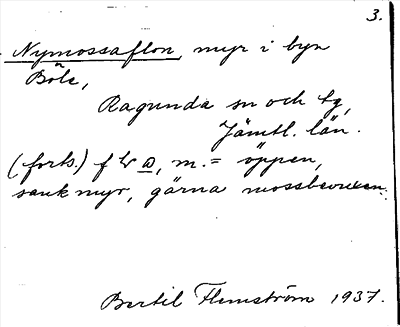 3.
Nymossaflon, myr i byn
Böle,
Ragunda sn och tg,
Jämtl. län.
(forts.) f lv a, m. = öppen,
sank myr, gärna mossbevuxen.
Bertil Flemström 1937.